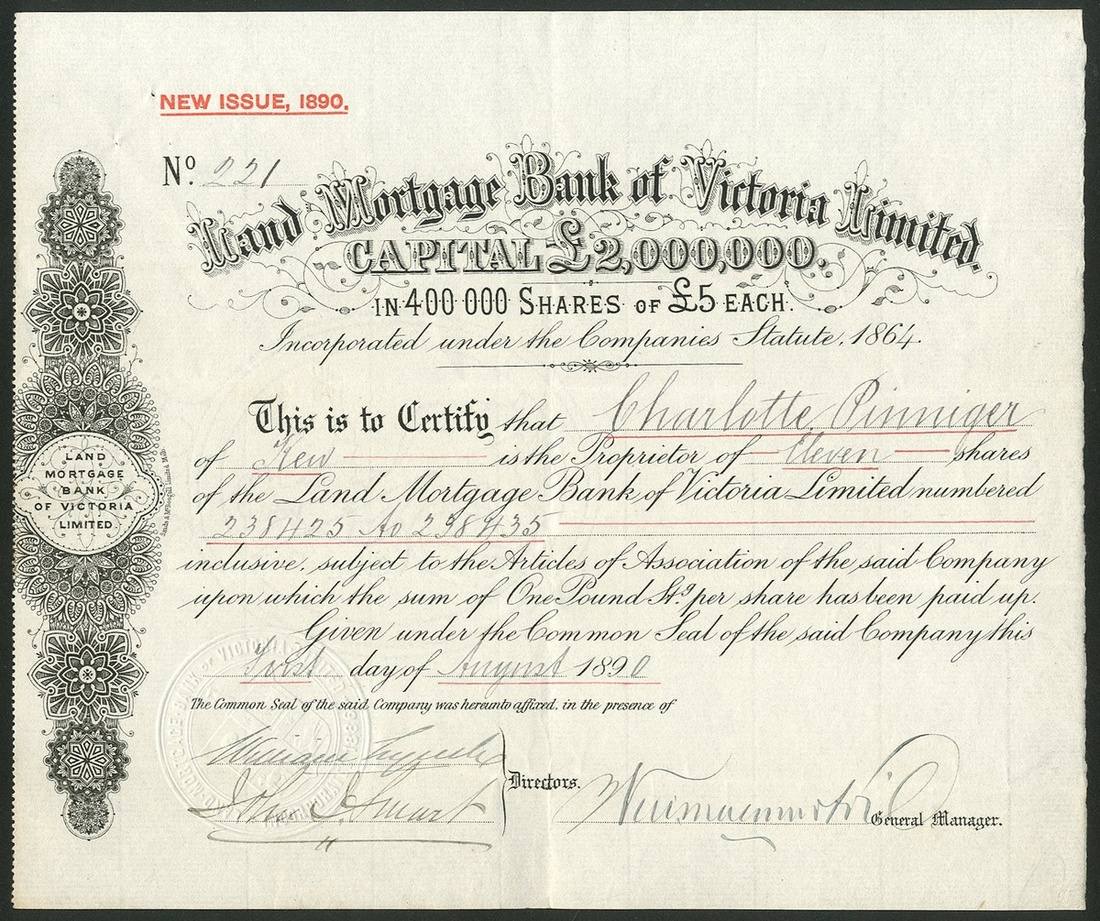 NEW ISSUE, 1890.
No. 221
Land Mortgage Bank of Victoria Limited.
CAPITAL £2,000,000.
IN 400 000 SHARES OF £5 EACH.
Incorporated under the Companies Statute, 1864.
This is to Certify that Charlotte Pinniger
of Kew is the Proprietor of Eleven shares
of the Land Mortgage Bank of Victoria Limited numbered
238425 to 238435
inclusive, subject to the Articles of Association of the said Company
upon which the sum of One Pound Stg per share has been paid up.
Given under the Common Seal of the said Company this
First day of August 1890
The Common Seal of the said Company was hereunto affixed, in the presence of
John Smart
Directors.
General Manager.
LAND
MORTGAGE
BANK
OF VICTORIA
LIMITED